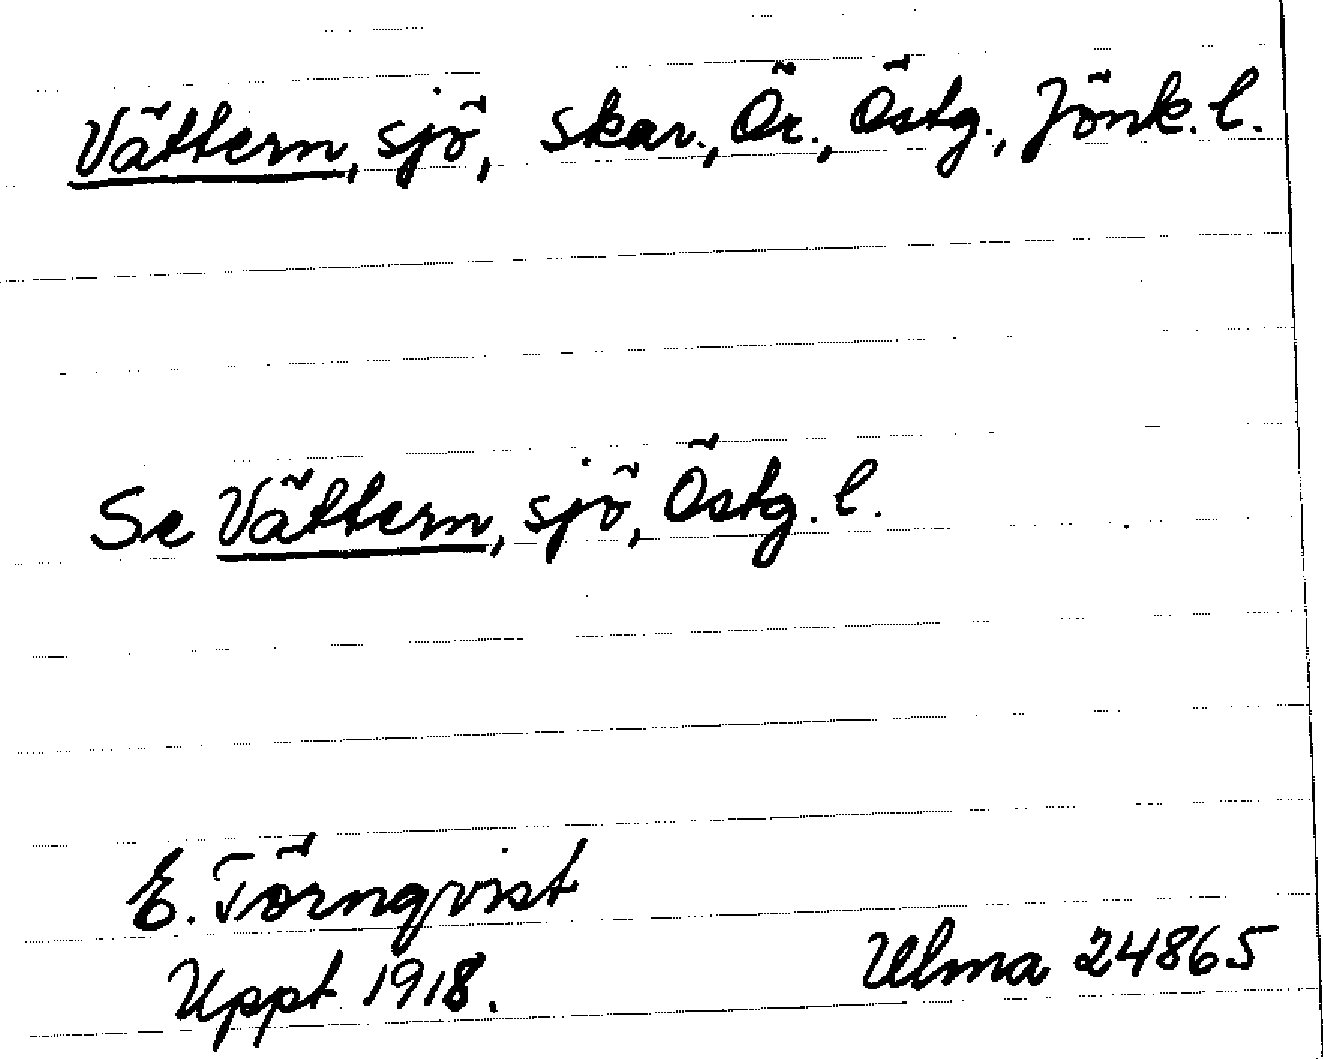 Vättern, sjö, Skar., Ör., Östg., Jönk. l.
Se Vättern, sjö, Östg. l.
E. Törnqvist
Uppt 1918.
Ulma 24865